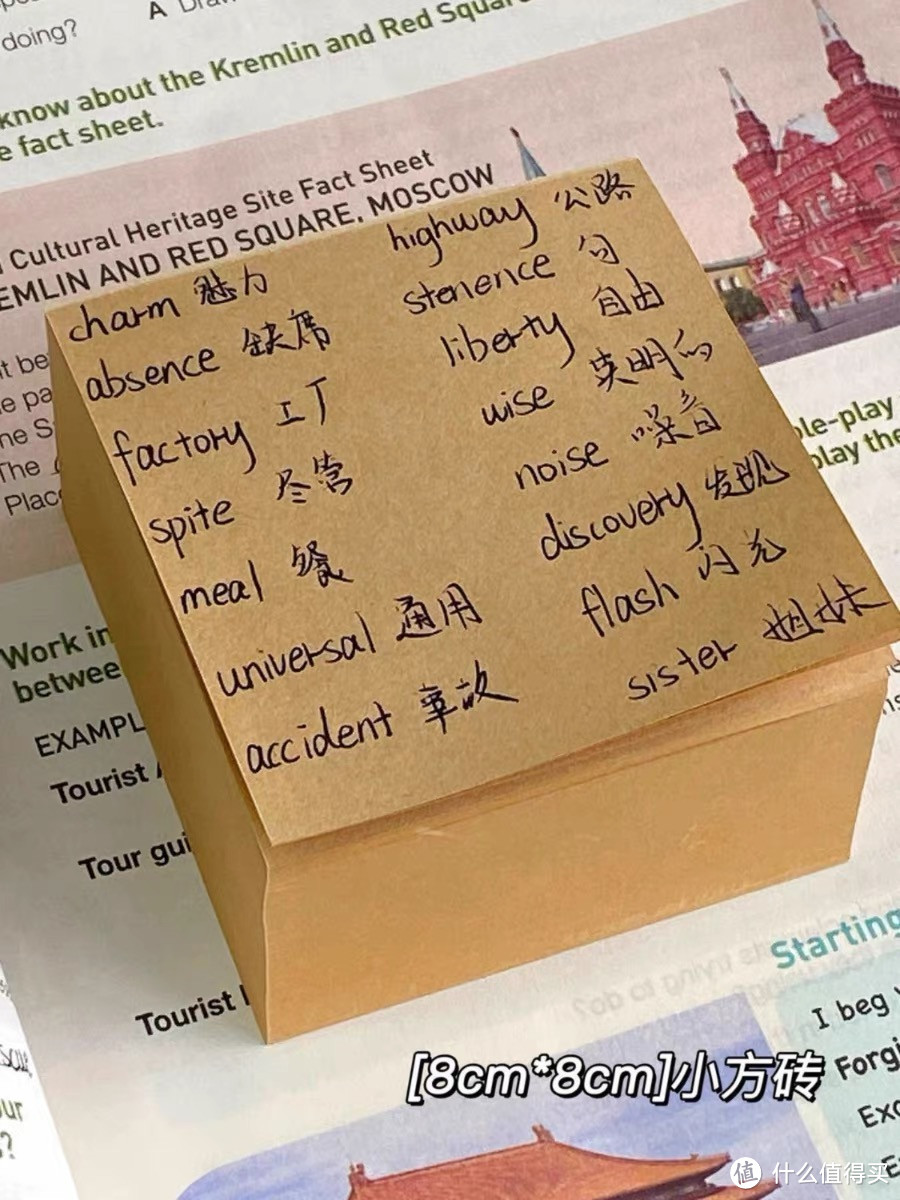 A
doing?
know about the Kremlin and Red Square
e fact sheet.
Cultural Heritage Site Fact Sheet
EMLIN AND RED SQUARE, MOSCOW
charm 魅力
absence 缺席
factory 工厂
spite 尽管
meal 餐
universal 通用
accident 事故
highway 公路
stenence 句
liberty 自由
wise 英明的
noise 噪音
discovery 发现
flash 闪光
sister 姐妹
t be
e pa
ne S
The
Plac
le-play
play the
Work in
between
EXAMPL
Tourist
Tour gui
Tourist
Starting
I beg
Forgi
Exc
ur
s?
[8cm*8cm]小方砖
值 什么值得买